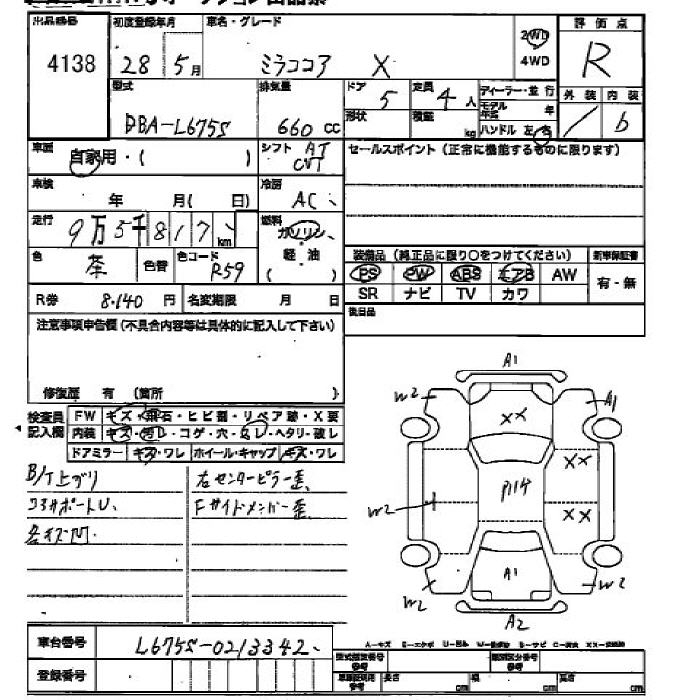 出品番号 初度登録年月 車名・グレード 評価点
4138 28年 5月 ミラココア X 2WD 4WD R
型式 排気量 ドア 定員 ディーラー・並行
DBA-L675S 660 cc 5 4人 モデル年式 年
形状 積載 kg ハンドル 左・右
外装 内装
/ b
車歴 自家用・( ) シフト AT CVT セールスポイント(正常に機能するものに限ります)
車検 年 月( 日) 冷房 AC
走行 9万5千817km 燃料 ガソリン 軽油 ( )
色 茶 色替 色コード R59
装備品(純正品に限り○をつけてください) 新車保証書
PS PW ABS エアB AW 有・無
SR ナビ TV カワ
R券 8,140円 名変期限 月 日 後日品
注意事項申告欄(不具合内容等は具体的に記入して下さい)
修復歴 有(箇所 )
検査員記入欄 FW キズ・飛石・ヒビ割・リペア跡・X要
内装 キズ・汚レ・コゲ・穴・ムレ・ヘタリ・破レ
ドアミラー キズ・ワレ ホイール・キャップ キズ・ワレ
左センターピラー歪
Fサイドメンバー歪
各キズ凹
A1
W2 A1
XX
XX
P114
W2 XX
A1
W2 W2
A2
車台番号 L675S-0213342
登録番号
型式指定番号 参考 類別区分番号 参考
長さ cm 幅 cm 高さ cm